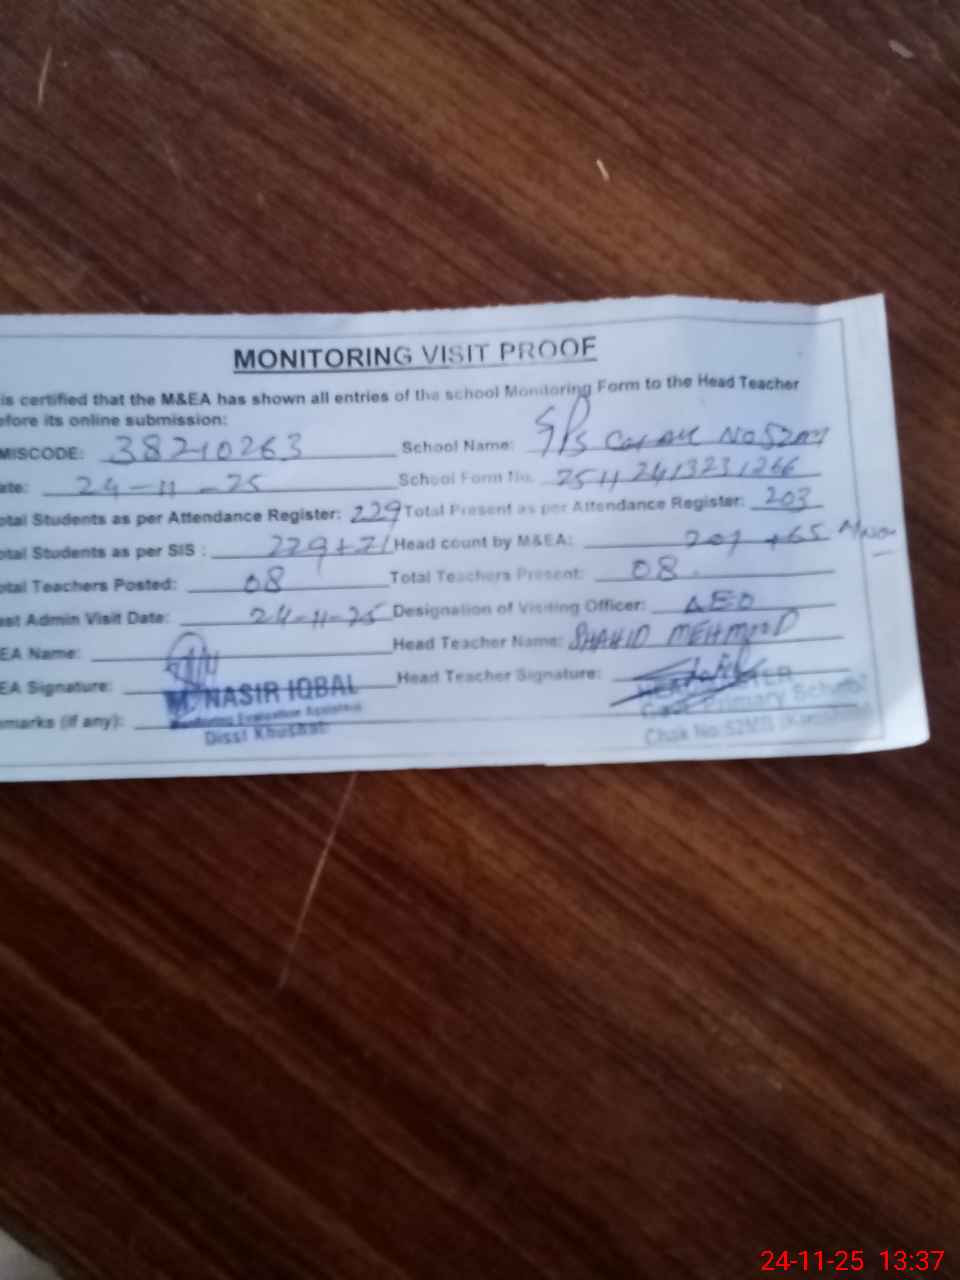 MONITORING VISIT PROOF
is certified that the M&EA has shown all entries of the school Monitoring Form to the Head Teacher
efore its online submission:
MISCODE: 38210263 School Name: GPS Chak No 52M
ate: 24-11-25 School Form No. 25112413231266
otal Students as per Attendance Register: 229 Total Present as per Attendance Register: 203
otal Students as per SIS : 229+71 Head count by M&EA: +65
otal Teachers Posted: 08 Total Teachers Present: 08
ast Admin Visit Date: 24-11-25 Designation of Visiting Officer: AEO
EA Name: Head Teacher Name: SHAHID MEHMOOD
EA Signature: Head Teacher Signature:
M. NASIR IQBAL
Monitoring Evaluation Assistant
Disst Khushab
marks (if any):
Primary School
Chak No.52MB (Khushab)
24-11-25 13:37